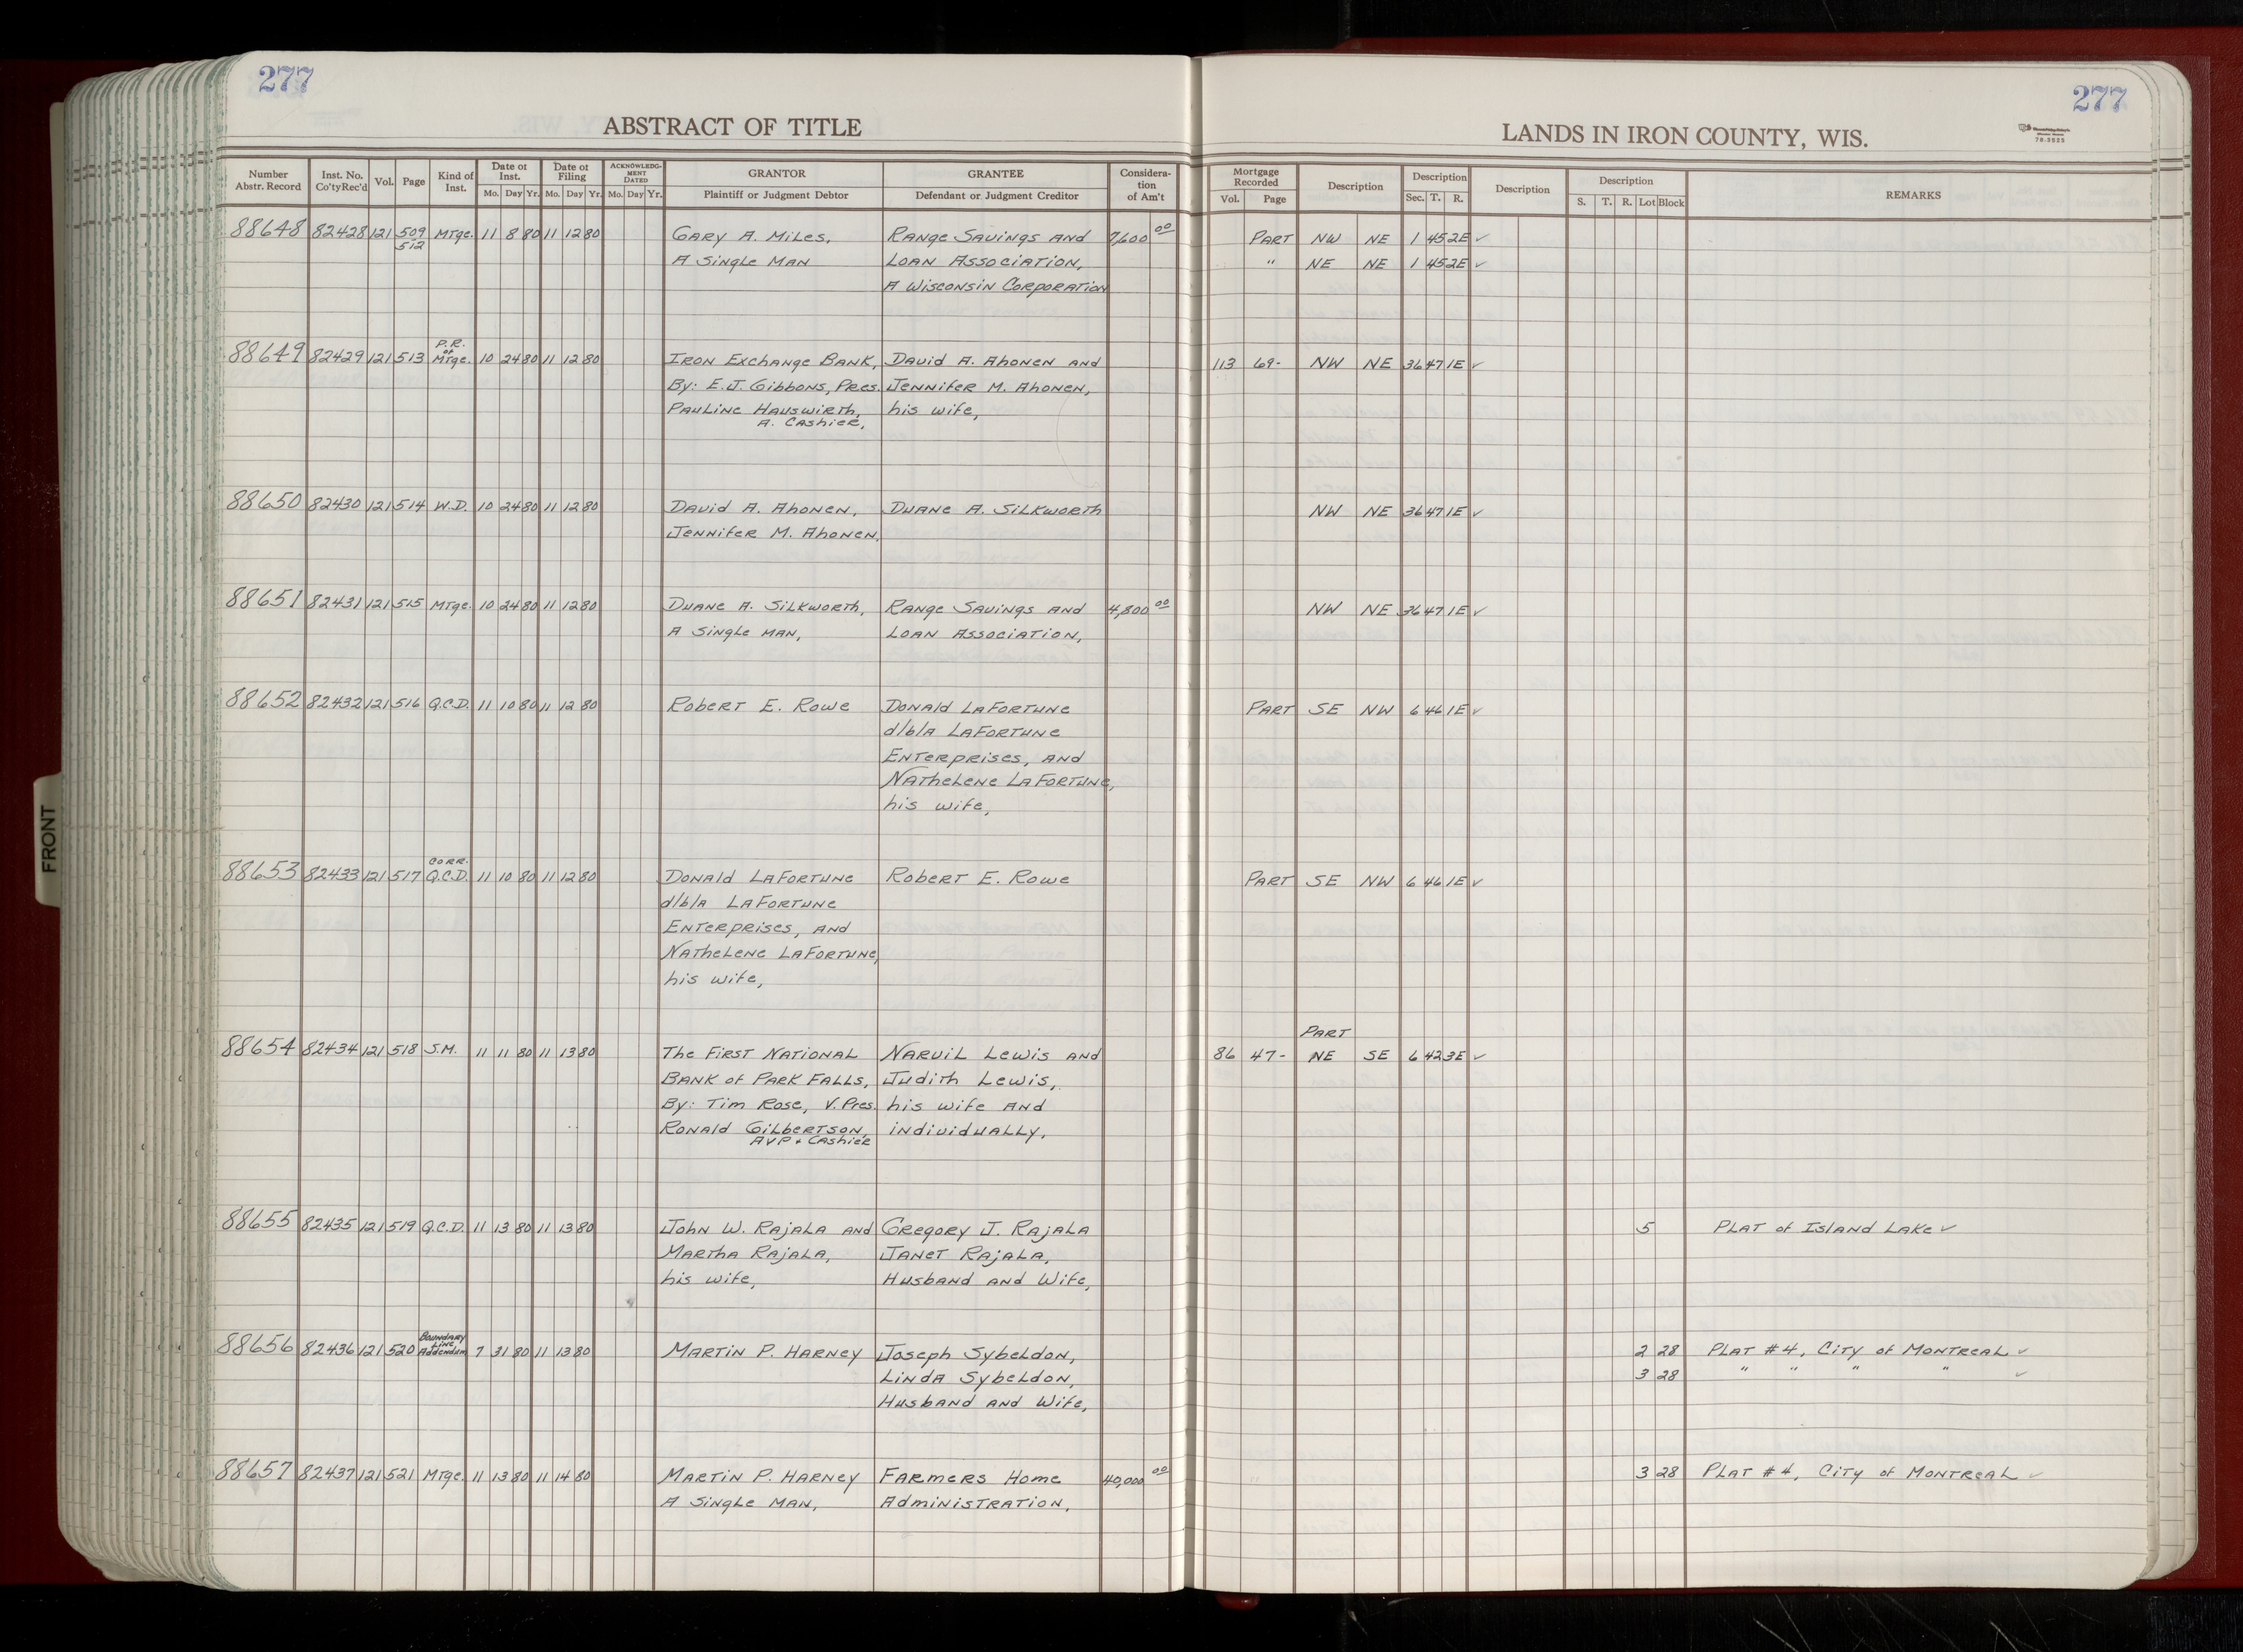 277
277
ABSTRACT OF TITLE
LANDS IN IRON COUNTY, WIS.
Number Abstr. Record | Inst. No. Co'tyRec'd | Vol. | Page | Kind of Inst. | Date of Inst. Mo. Day Yr. | Date of Filing Mo. Day Yr. | ACKNOWLEDGMENT DATED Mo. Day Yr. | GRANTOR Plaintiff or Judgment Debtor | GRANTEE Defendant or Judgment Creditor | Consideration of Am't | Mortgage Recorded Vol. Page | Description | Description Sec. T. R. | Description | Description S. T. R. Lot Block | REMARKS
88648 82428 121 509 Mtge. 11 8 80 11 12 80 Gary A. Miles, Range Savings and 7,600 00 Part NW NE 1 45 2E ✓
512 A Single Man Loan Association, " NE NE 1 45 2E ✓
A Wisconsin Corporation
P.R. of
88649 82429 121 513 Mtge. 10 24 80 11 12 80 Iron Exchange Bank, David A. Ahonen and 113 69- NW NE 36 47 1E ✓
By: E.J. Gibbons, Pres. Jennifer M. Ahonen,
Pauline Hauswirth, his wife,
A. Cashier,
88650 82430 121 514 W.D. 10 24 80 11 12 80 David A. Ahonen, Duane A. Silkworth NW NE 36 47 1E ✓
Jennifer M. Ahonen,
88651 82431 121 515 Mtge. 10 24 80 11 12 80 Duane A. Silkworth, Range Savings and 4,800 00 NW NE 36 47 1E ✓
A Single Man, Loan Association,
88652 82432 121 516 Q.C.D. 11 10 80 11 12 80 Robert E. Rowe Donald LaFortune Part SE NW 6 46 1E ✓
d/b/a LaFortune
Enterprises, and
Nathelene LaFortune,
his wife,
Corr.
88653 82433 121 517 Q.C.D. 11 10 80 11 12 80 Donald LaFortune Robert E. Rowe Part SE NW 6 46 1E ✓
d/b/a LaFortune
Enterprises, and
Nathelene LaFortune,
his wife,
Part
88654 82434 121 518 S.M. 11 11 80 11 13 80 The First National Narvil Lewis and 86 47- NE SE 6 42 3E ✓
Bank of Park Falls, Judith Lewis,
By: Tim Rose, V. Pres. his wife and
Ronald Gilbertson, individually.
AVP + Cashier
88655 82435 121 519 Q.C.D. 11 13 80 11 13 80 John W. Rajala and Gregory J. Rajala 5 Plat of Island Lake ✓
Martha Rajala, Janet Rajala,
his wife, Husband and Wife,
Boundary Line
88656 82436 121 520 Addendum 7 31 80 11 13 80 Martin P. Harney Joseph Sybeldon, 2 28 Plat #4, City of Montreal ✓
Linda Sybeldon, 3 28 " " " " ✓
Husband and Wife,
88657 82437 121 521 Mtge. 11 13 80 11 14 80 Martin P. Harney Farmers Home 40,000 00 3 28 Plat #4, City of Montreal ✓
A Single Man, Administration,
FRONT